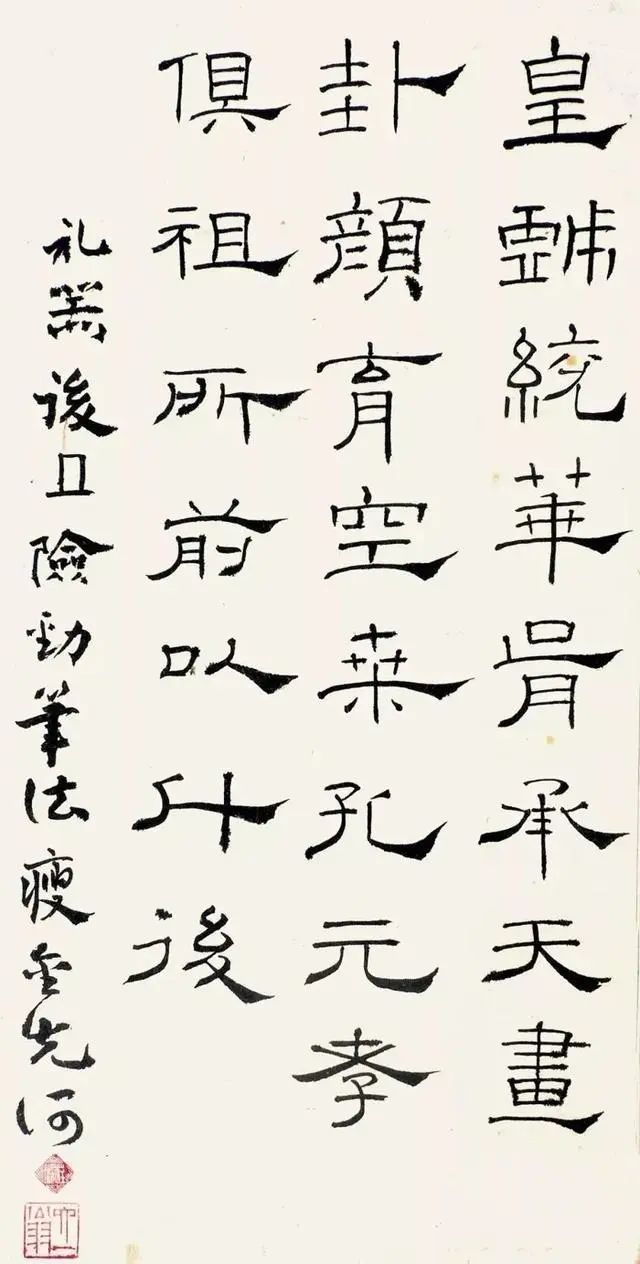 皇戲統華胥承天畫
卦顏育空桒孔元孝
俱祖所前以什後
礼器後且險勁筆法瘦金先河